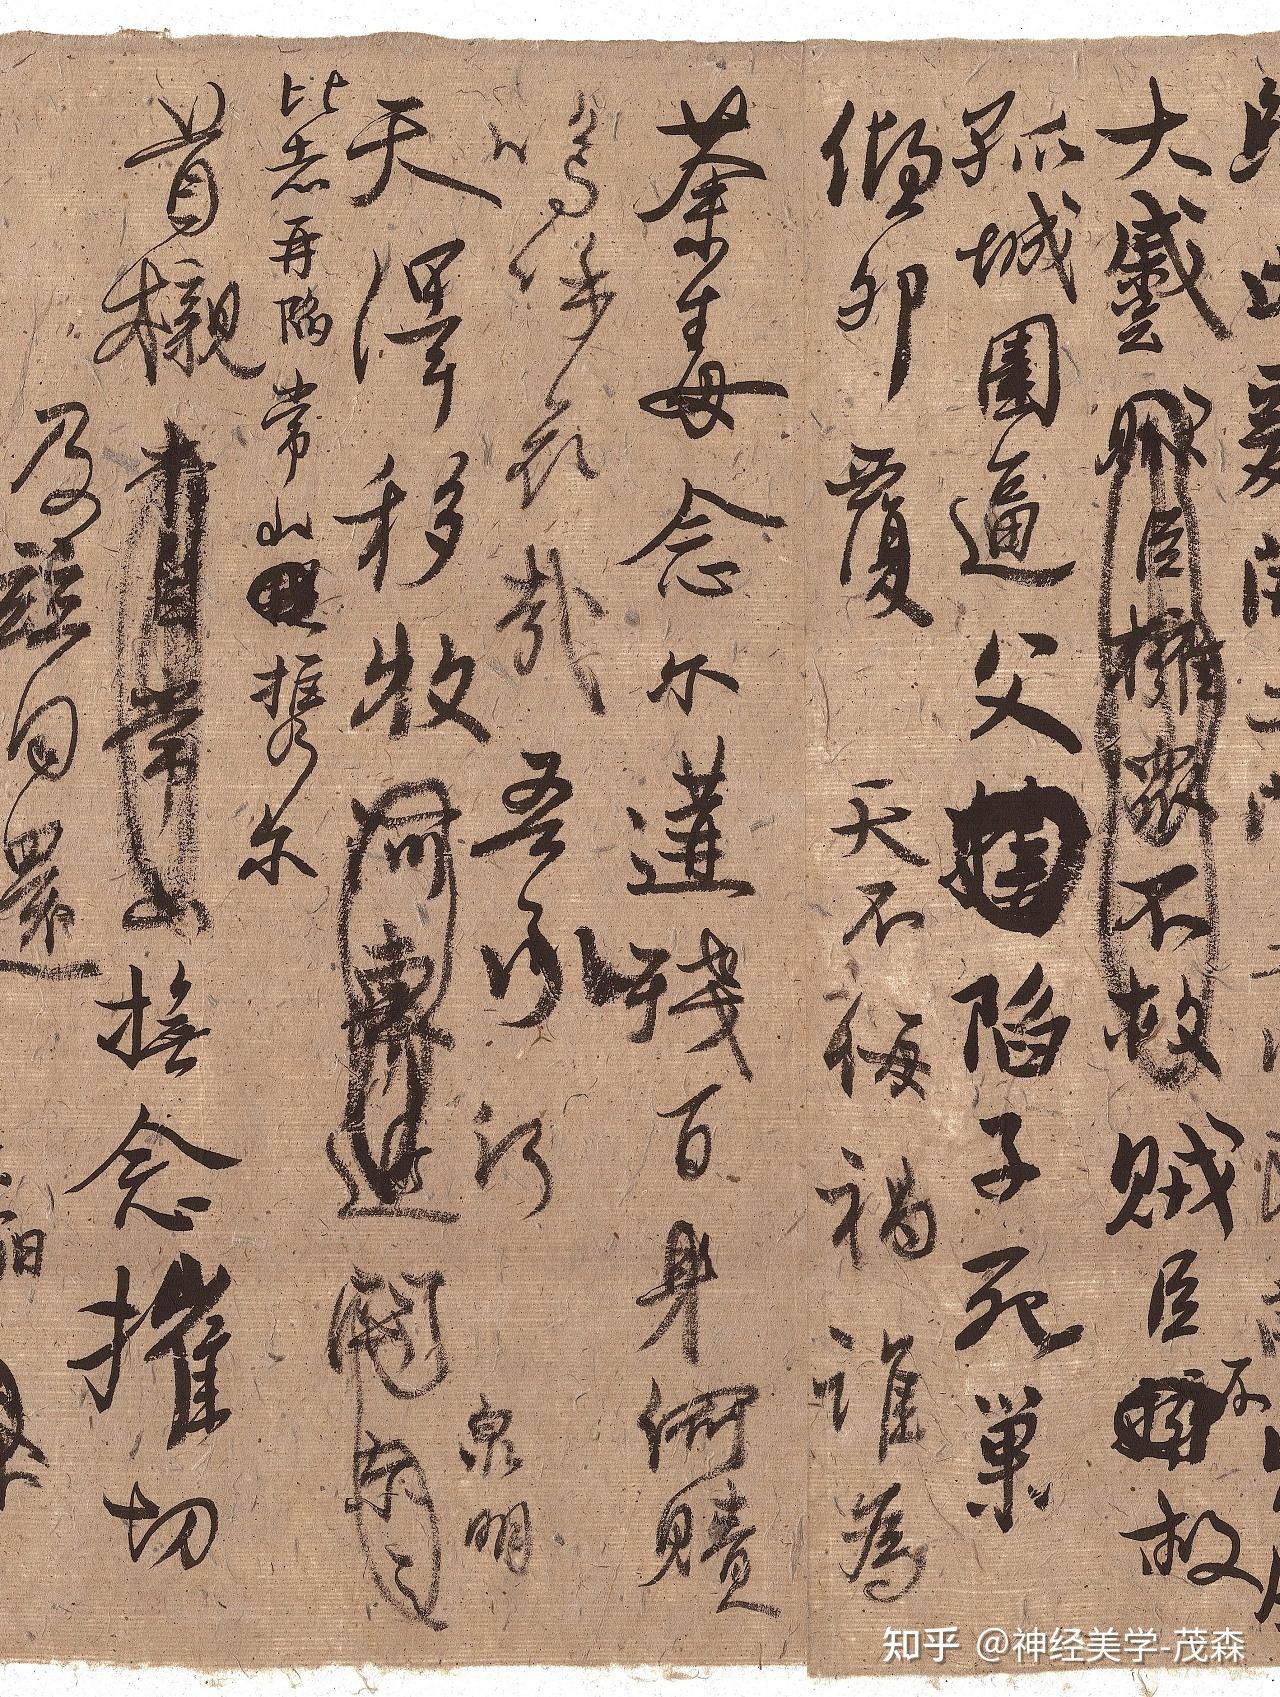 大蹙賊臣擁衆不救賊臣不救
孤城圍逼父陷子死巢
傾卵覆天不悔禍誰為
荼毒念爾遘殘百身何贖
嗚呼哀哉吾承
天澤移牧河東近
河關泉明
比者再陷常山携爾
首櫬亦自常山撫念摧切
及茲同還
知乎 @神经美学-茂森